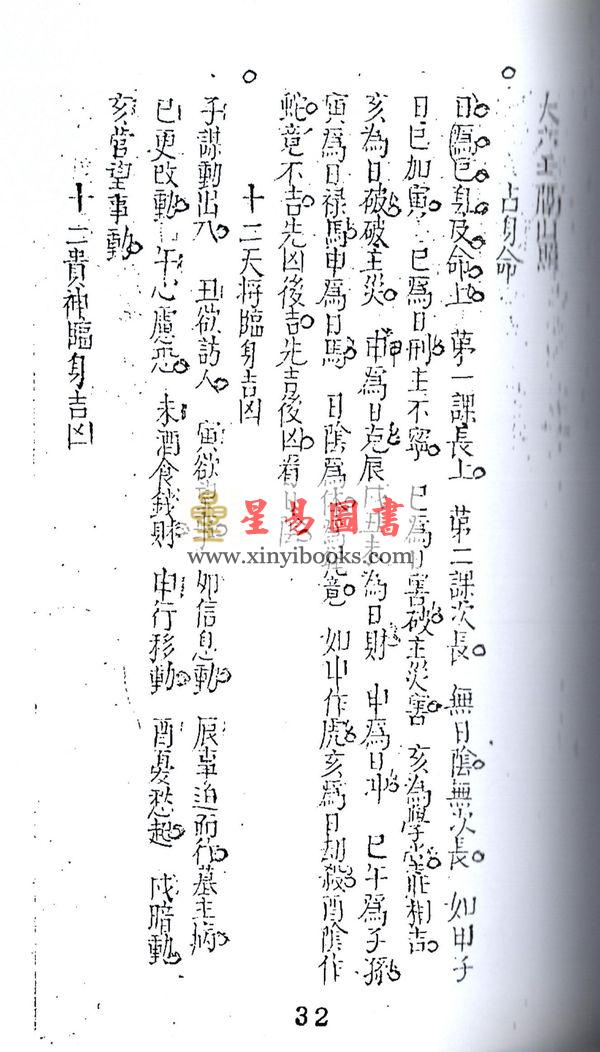 占身命
日為已身及命上。第一課長上。第二課次長。無日陰無次長。如甲子
日巳加寅。巳為日刑主不寧。巳為日害破主災害。亥為學堂旺相吉。
亥為日破破主災。申為日克辰戌丑未為日財。申為日冲。巳午為子孫。
寅為日祿馬申為日馬。日陰為竟。如申作虎亥為日劫殺酉陰作
蛇竟不吉先凶後吉先吉後凶看
十二天將臨身吉凶
子謀動出入。丑欲訪人。寅欲 卯信息動。辰事迫而行墓主病。
巳更改動。午心慮恐。未酒食錢財。申行移動。酉憂愁起。戌暗動。
亥當望事動。
十二貴神臨身吉凶
星易圖書
www.xinyibooks.com
32